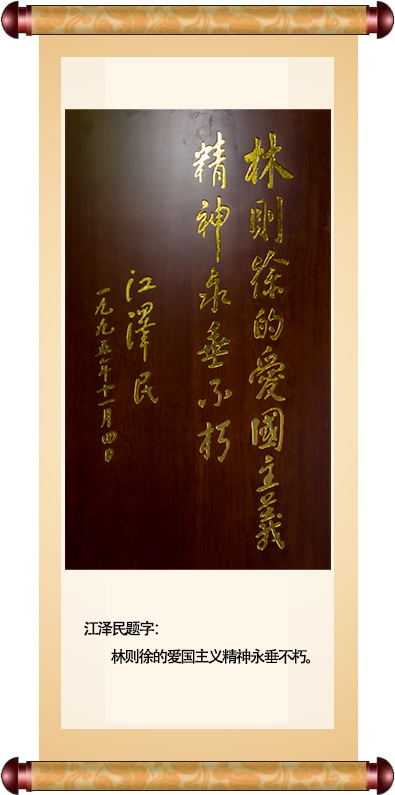 林则徐的愛國主義
精神永垂不朽
江澤民
一九九五年十一月四日
江泽民题字：
林则徐的爱国主义精神永垂不朽。